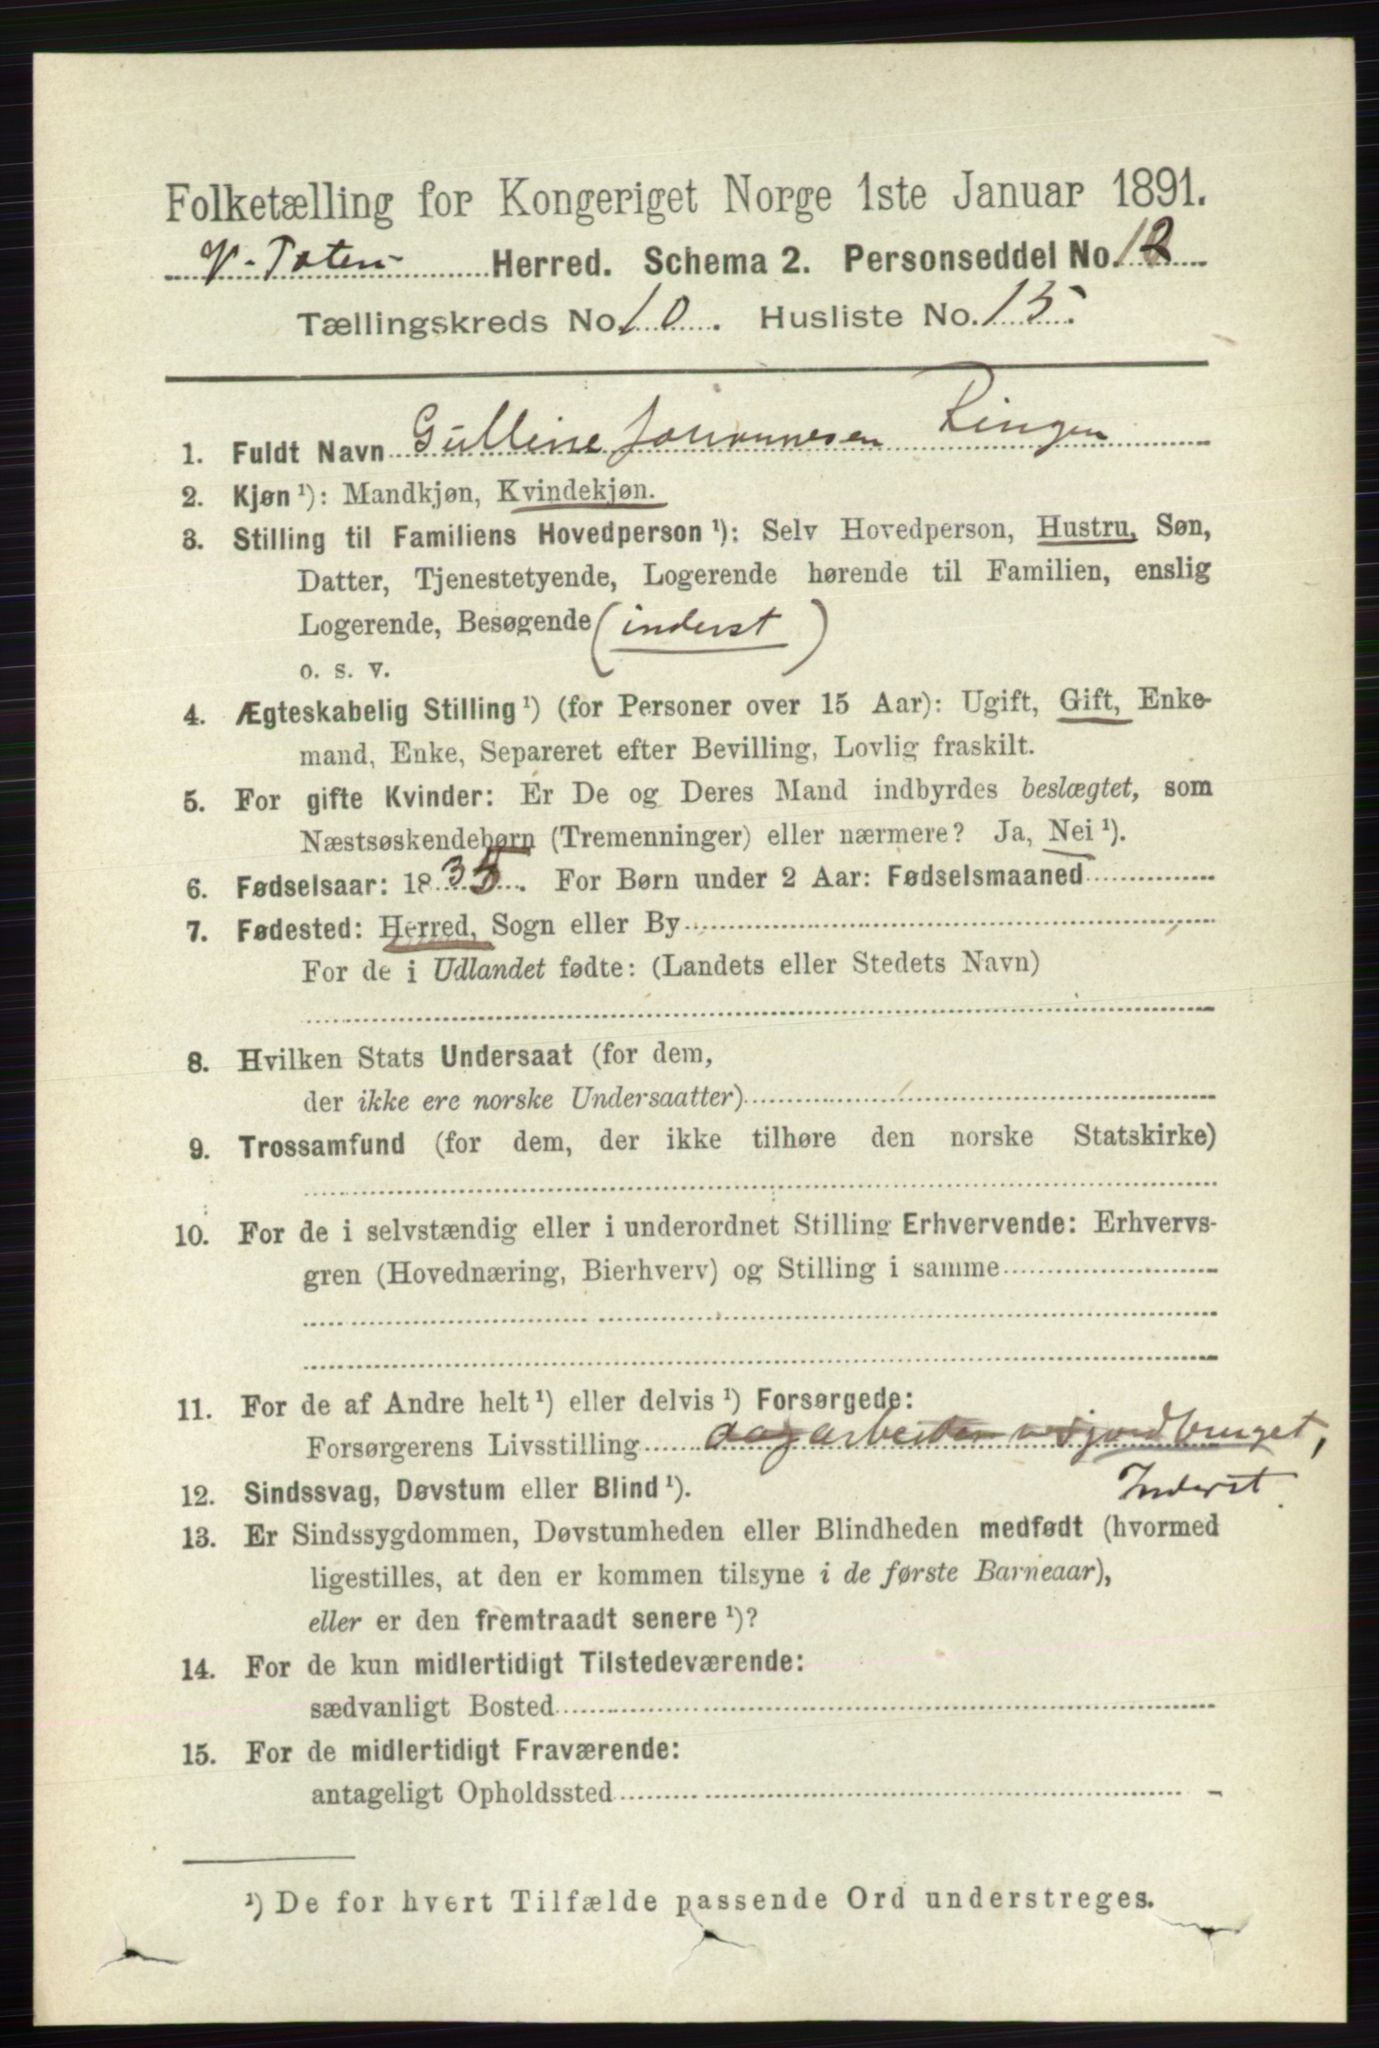 Folketælling for Kongeriget Norge 1ste Januar 1891.
V. Toten Herred. Schema 2. Personseddel No. 12
Tællingskreds No. 10. Husliste No. 15.
1. Fuldt Navn Gulline Johannesen Ringen
2. Kjøn ¹): Mandkjøn, Kvindekjøn.
3. Stilling til Familiens Hovedperson ¹): Selv Hovedperson, Hustru, Søn,
Datter, Tjenestetyende, Logerende hørende til Familien, enslig
Logerende, Besøgende (inderst)
o. s. v.
4. Ægteskabelig Stilling ¹) (for Personer over 15 Aar): Ugift, Gift, Enke-
mand, Enke, Separeret efter Bevilling, Lovlig fraskilt.
5. For gifte Kvinder: Er De og Deres Mand indbyrdes beslægtet, som
Næstsøskendebørn (Tremenninger) eller nærmere? Ja, Nei ¹).
6. Fødselsaar: 1835. For Børn under 2 Aar: Fødselsmaaned
7. Fødested: Herred, Sogn eller By
For de i Udlandet fødte: (Landets eller Stedets Navn)
8. Hvilken Stats Undersaat (for dem,
der ikke ere norske Undersaatter)
9. Trossamfund (for dem, der ikke tilhøre den norske Statskirke)
10. For de i selvstændig eller i underordnet Stilling Erhvervende: Erhvervs-
gren (Hovednæring, Bierhverv) og Stilling i samme
11. For de af Andre helt ¹) eller delvis ¹) Forsørgede:
Forsørgerens Livsstilling dagarbeider v jordbruget,
Inderst.
12. Sindssvag, Døvstum eller Blind ¹).
13. Er Sindssygdommen, Døvstumheden eller Blindheden medfødt (hvormed
ligestilles, at den er kommen tilsyne i de første Barneaar),
eller er den fremtraadt senere ¹)?
14. For de kun midlertidigt Tilstedeværende:
sædvanligt Bosted
15. For de midlertidigt Fraværende:
antageligt Opholdssted
¹) De for hvert Tilfælde passende Ord understreges.